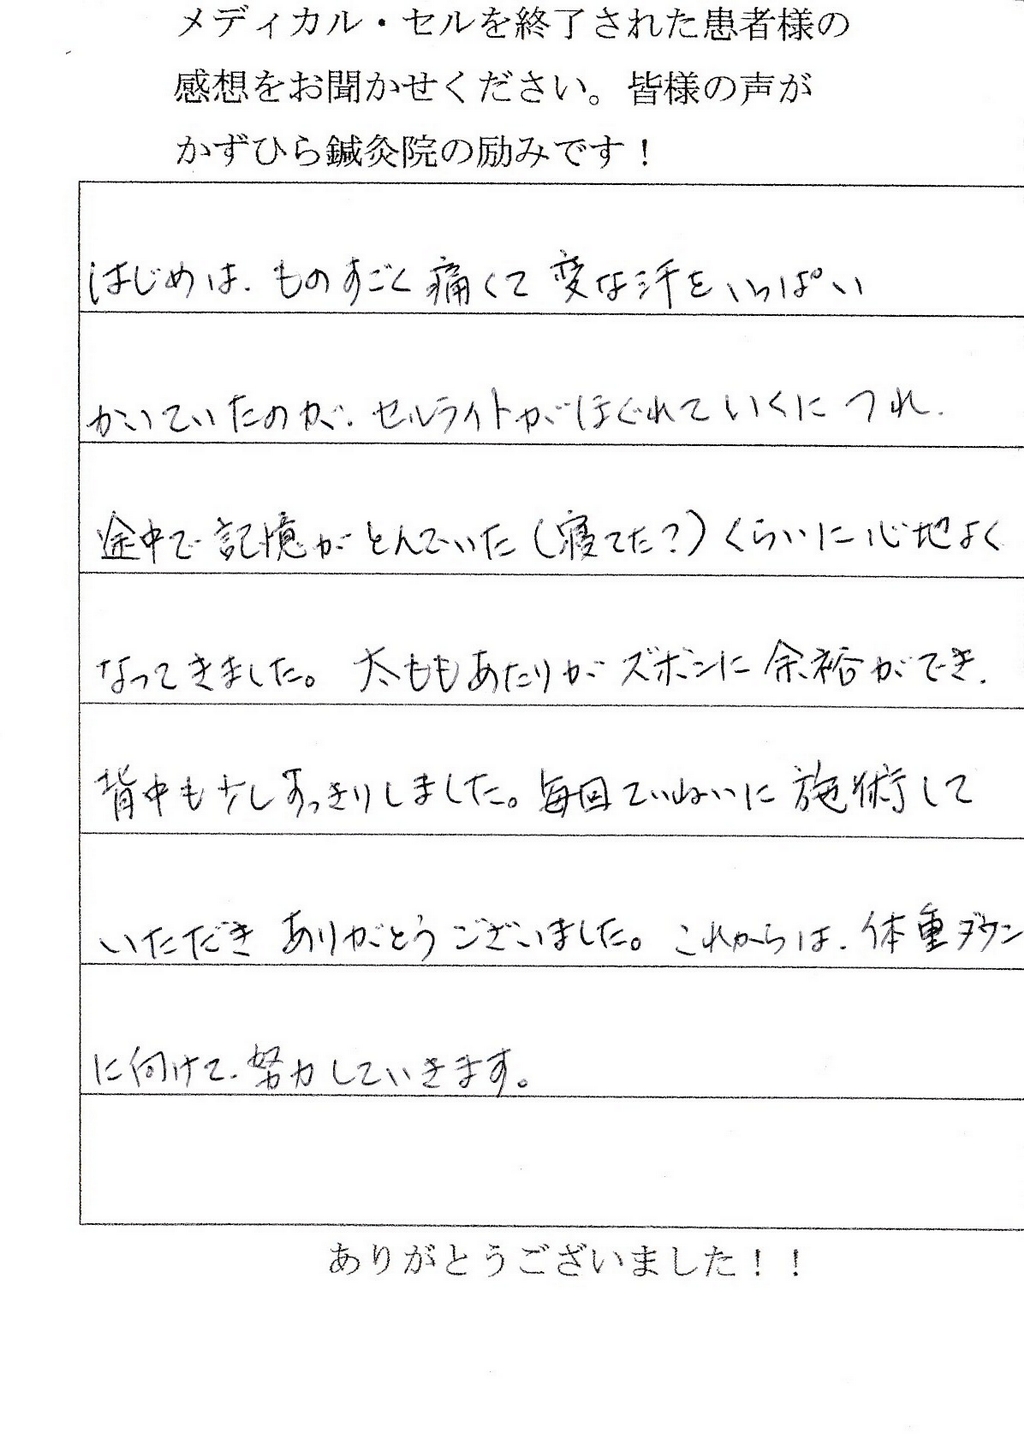 メディカル・セルを終了された患者様の
感想をお聞かせください。皆様の声が
かずひら鍼灸院の励みです！
はじめは、ものすごく痛くて変な汗をいっぱい
かいていたのが、セルライトがほぐれていくにつれ、
途中で記憶がとんでいた(寝てた?)くらいに心地よく
なってきました。太ももあたりがズボンに余裕ができ、
背中も少しすっきりしました。毎回ていねいに施術して
いただきありがとうございました。これからは、体重ダウン
に向けて、努力していきます。
ありがとうございました！！